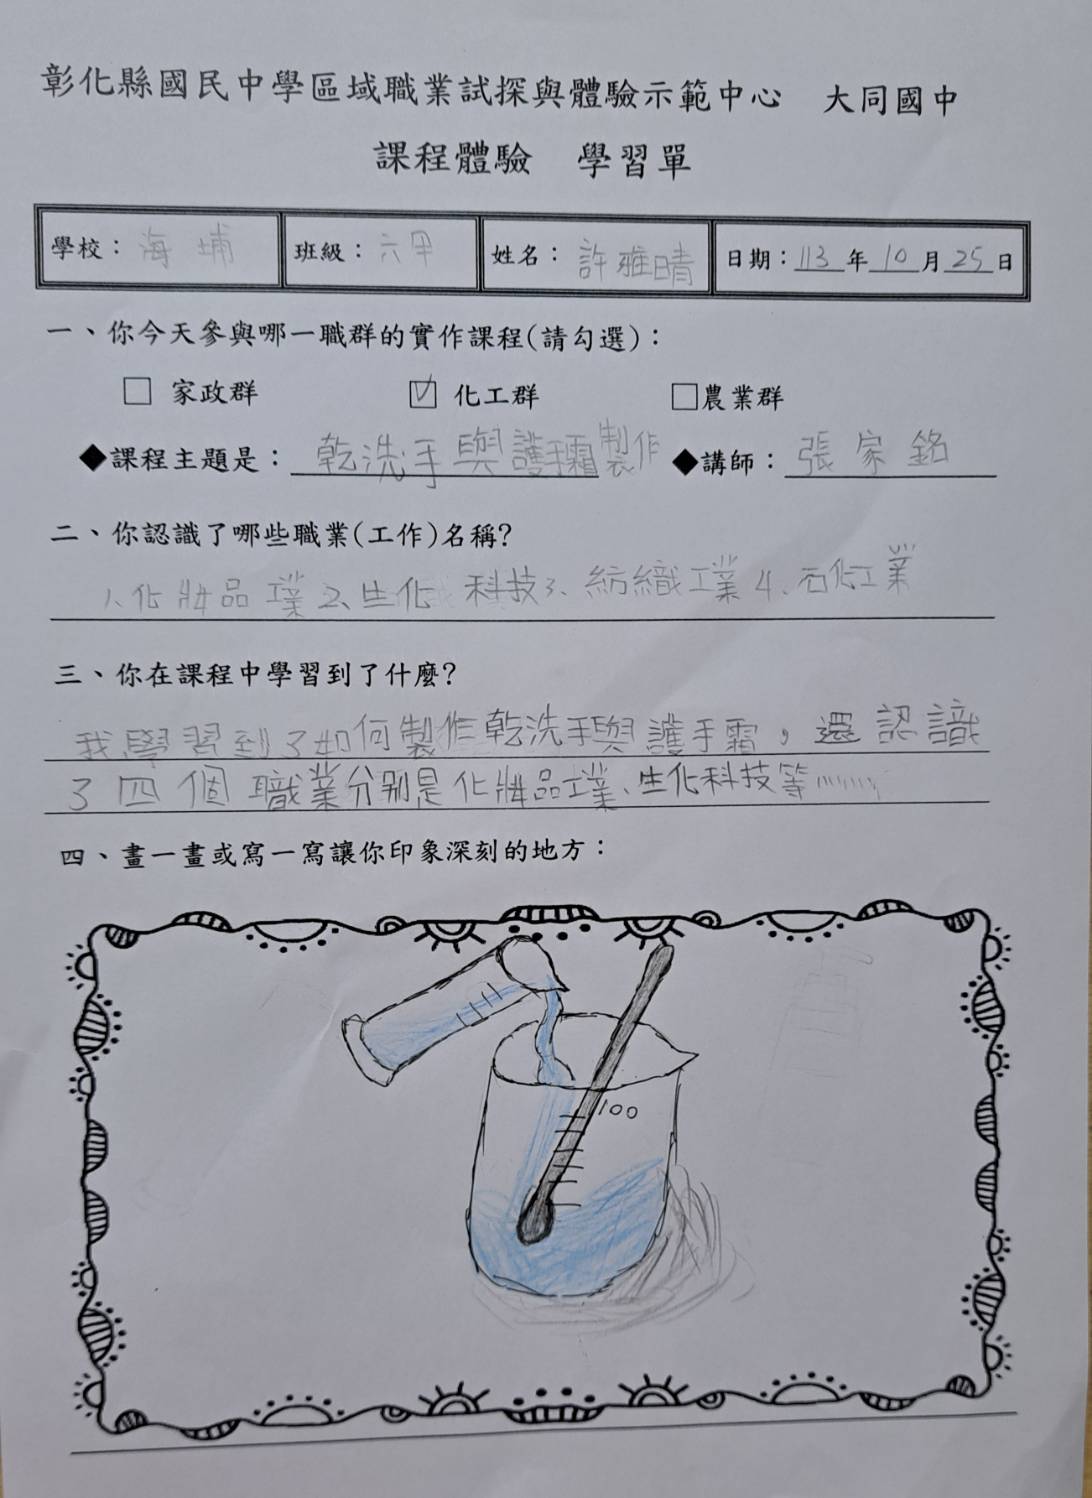 彰化縣國民中學區域職業試探與體驗示範中心　大同國中
課程體驗　學習單
學校：海埔　班級：六甲　姓名：許雅晴　日期：113年10月25日
一、你今天參與哪一職群的實作課程(請勾選)：
□ 家政群　☑ 化工群　□農業群
◆課程主題是：乾洗手與護手霜製作　◆講師：張家銘
二、你認識了哪些職業(工作)名稱?
1、化妝品工業2、生化科技3、紡織工業4、石化工業
三、你在課程中學習到了什麼?
我學習到了如何製作乾洗手與護手霜，還認識
了四個職業分別是化妝品工業、生化科技等………
四、畫一畫或寫一寫讓你印象深刻的地方：
100